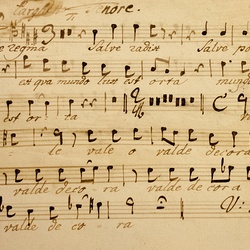 Largo Tenore.
regina Salve radix Salve po
est qua mundo lux est orta
est or ta
le vale o valde decora
valde deco ra valde decora
valde de co ra V: